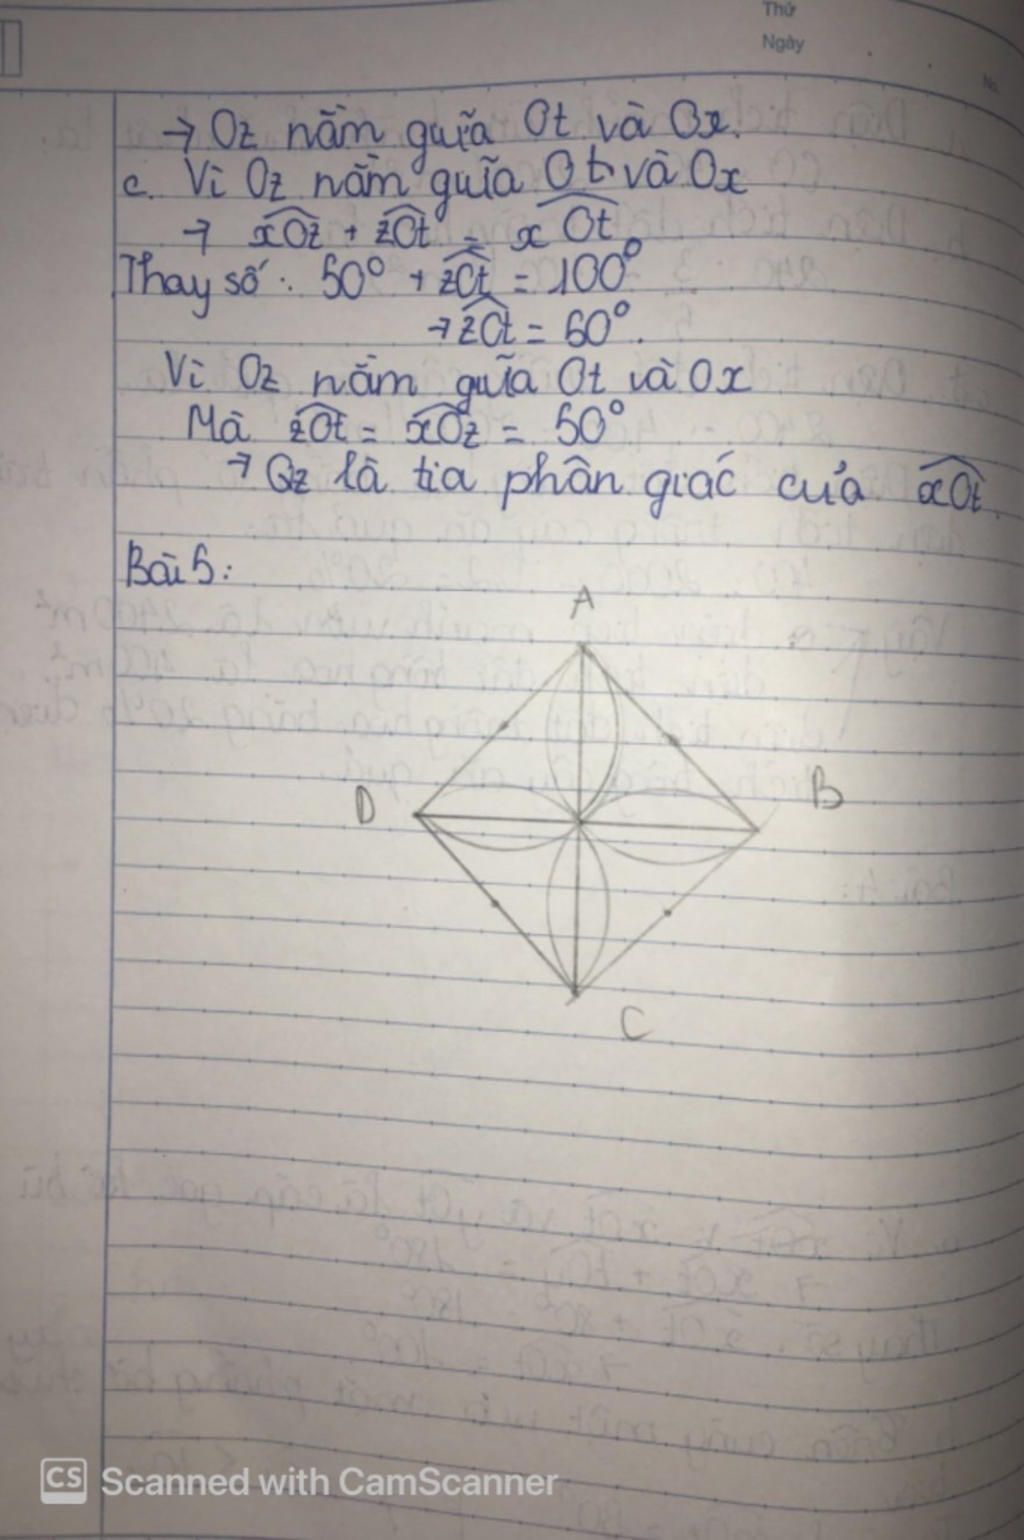 Thứ
Ngày
No.
→ Oz nằm giữa Ot và Ox.
c. Vì Oz nằm giữa Ot và Ox
→ xOz + zOt = xOt
Thay số: 50° + zOt = 100°
→ zOt = 50°.
Vì Oz nằm giữa Ot và Ox
Mà zOt = xOz = 50°
→ Oz là tia phân giác của xOt.
Bài 5:
A
D
B
C
CS Scanned with CamScanner